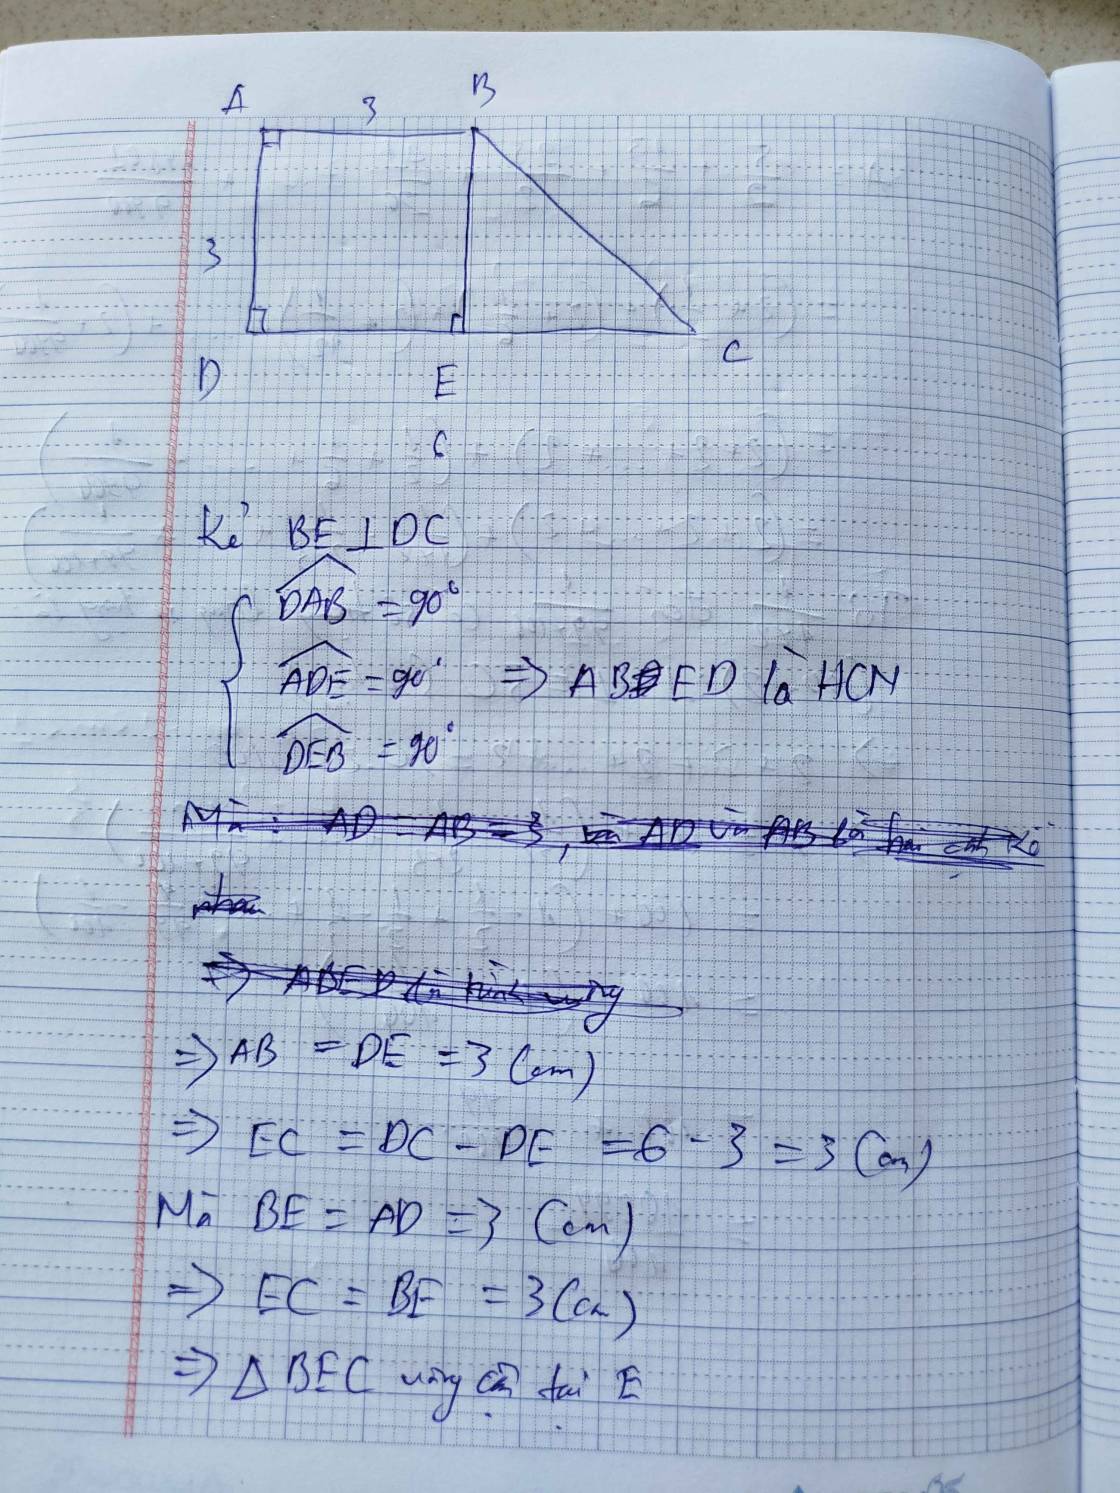 A 3 B
3
D E C
6
Kẻ BE ⊥ DC
DAB = 90°
ADE = 90° => ABED là HCN
DEB = 90°
Mà : AD = AB = 3, AD và AB là hai cạnh kề
nhau
=> ABED là hình vuông
=> AB = DE = 3 (cm)
=> EC = DC - DE = 6 - 3 = 3 (cm)
Mà BE = AD = 3 (cm)
=> EC = BE = 3 (cm)
=> Δ BEC vuông cân tại E